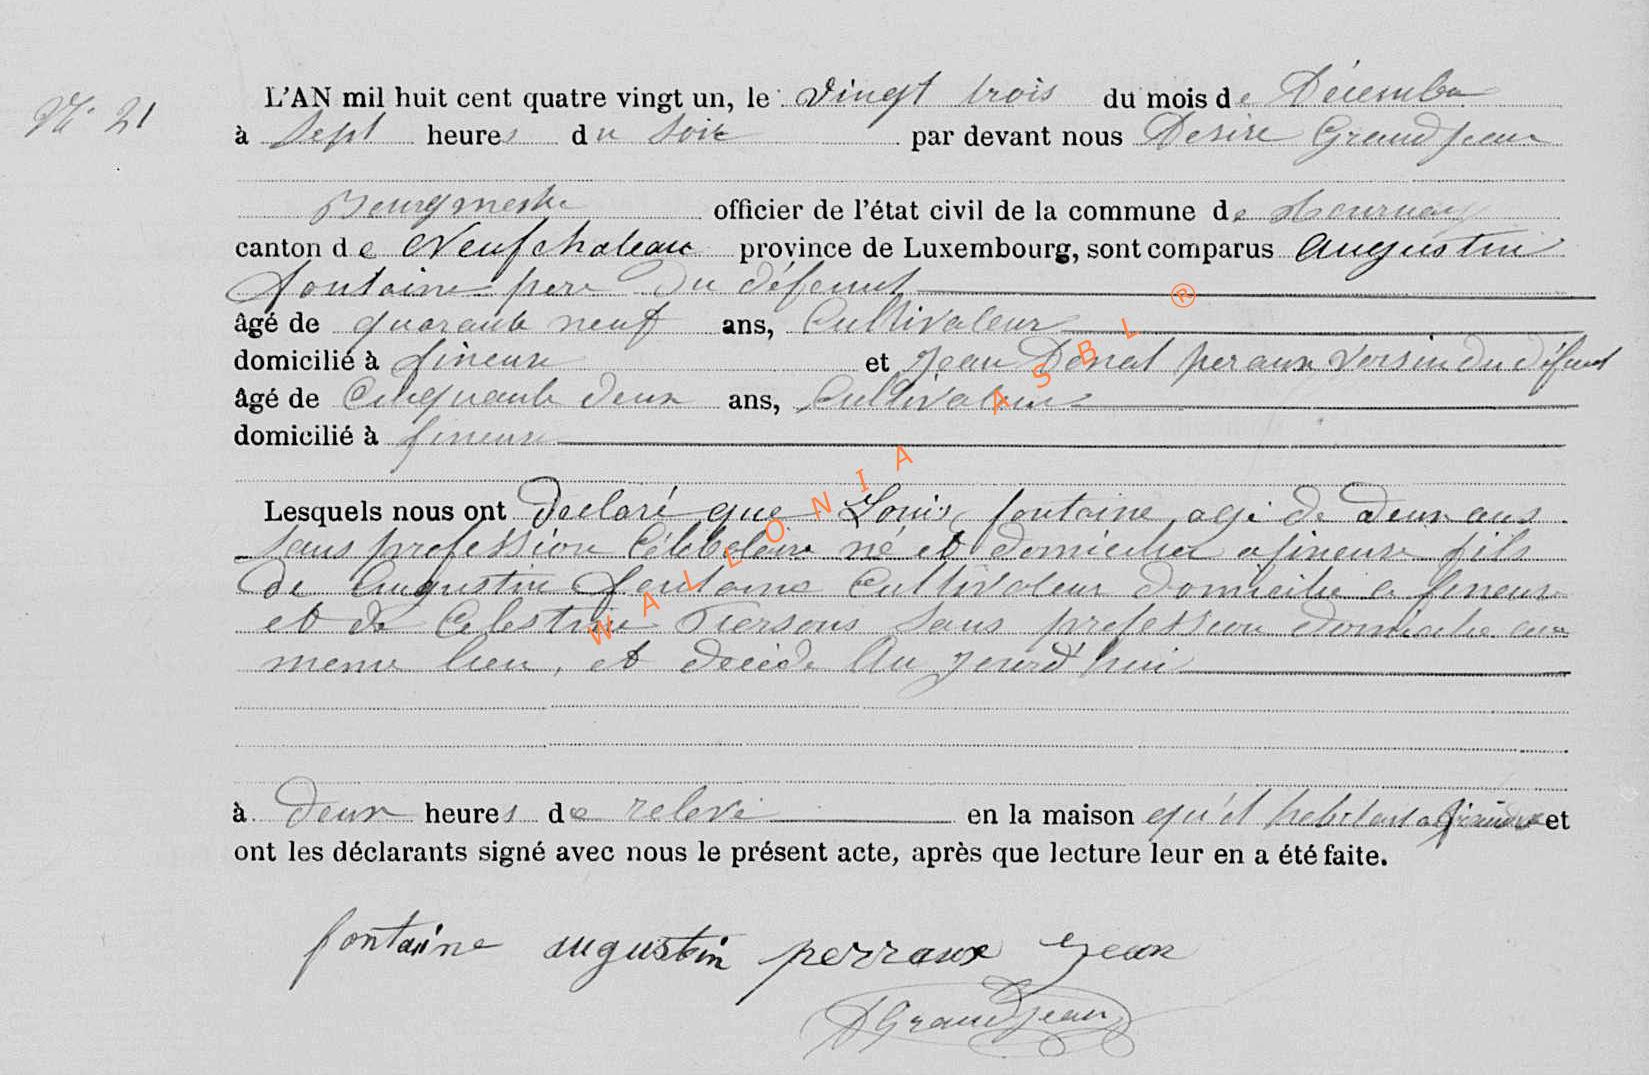 N° 21
L'AN mil huit cent quatre vingt un, le vingt trois du mois de Décembre
à Sept heures du soir par devant nous Desire Grandjean
Bourgmestre officier de l'état civil de la commune de
canton de Neufchateau province de Luxembourg, sont comparus Augustin
fontaine pere du défunt
âgé de quarante neuf ans, Cultivateur
domicilié à fineuse et Jean Donat peraux voisin du défunt
âgé de Cinquante deux ans, Cultivateur
domicilié à fineuse
Lesquels nous ont declaré que Louis fontaine agé de deux ans
sans profession Célebataire né et domicilier a fineuse fils
de Augustin fontaine Cultivateur domicilie a fineuse
et de Celestine Piersons sans profession domicilie au
meme lieu, et décéde Au jourd'hui
à deux heures de relevé en la maison qu'il habitait a fineuse et
ont les déclarants signé avec nous le présent acte, après que lecture leur en a été faite.
fontaine augustin perraux Jean
DGrandjean
WALLONIA ASBL ®